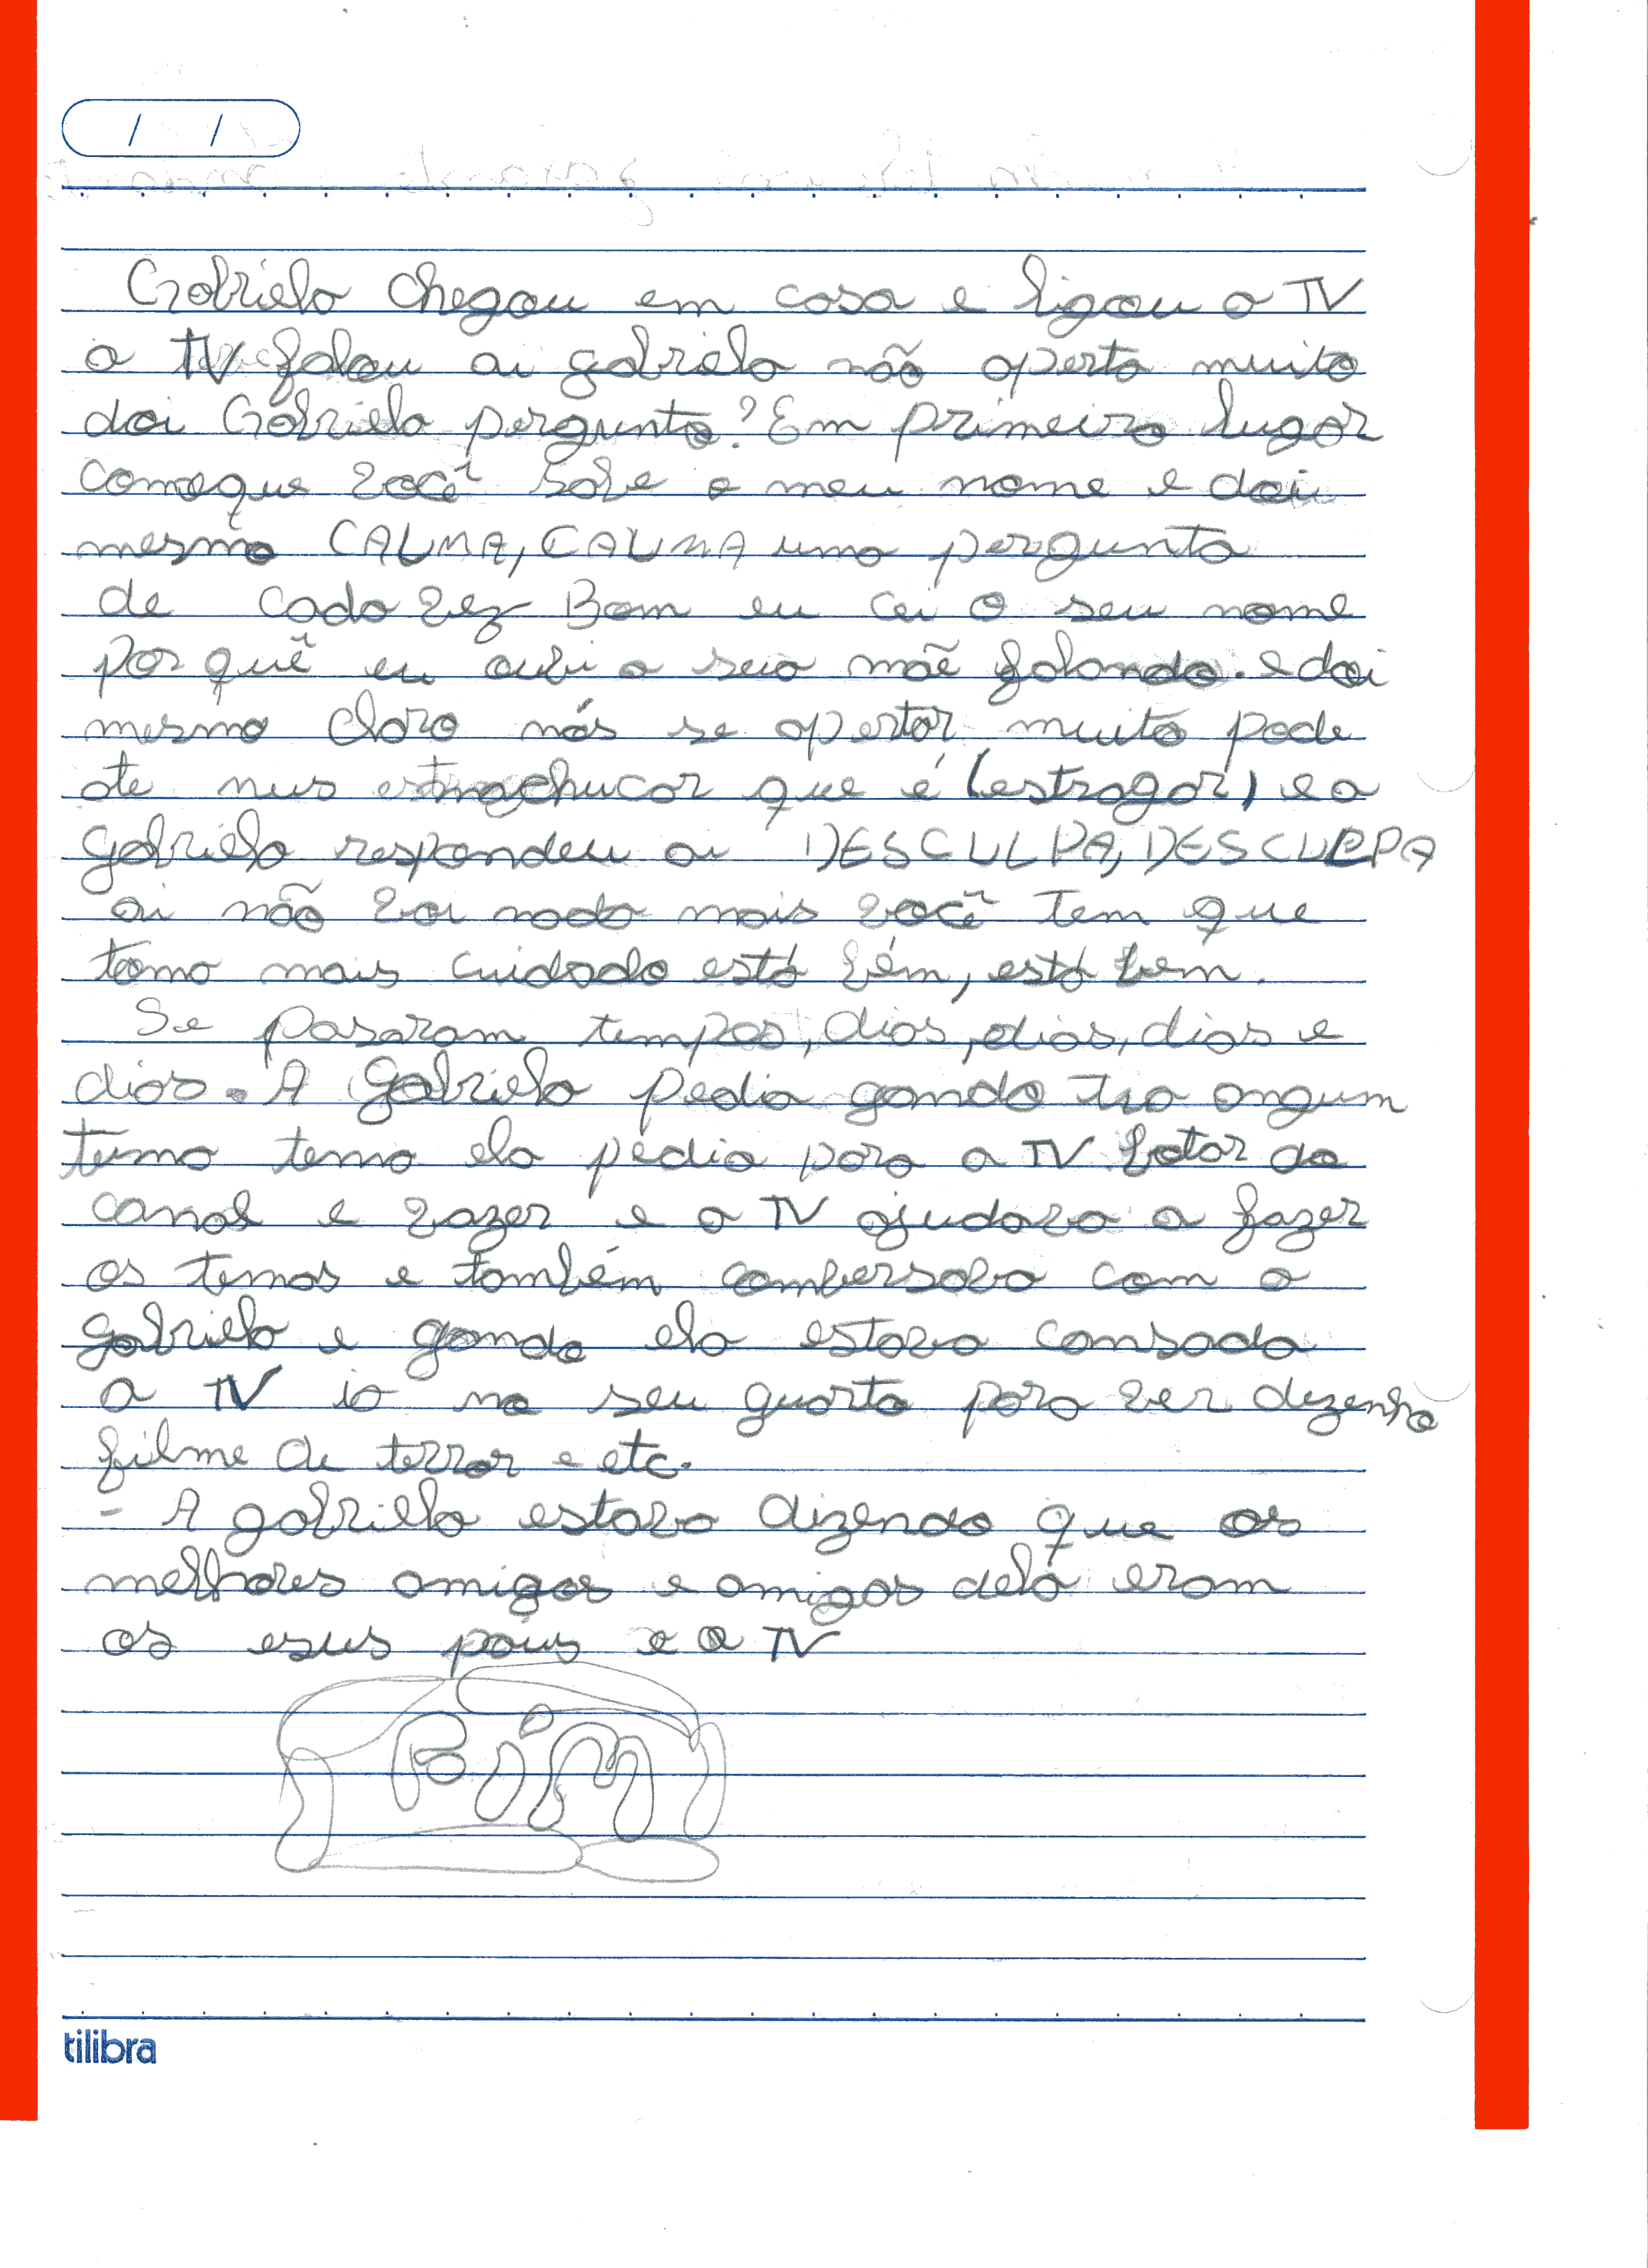 / /
Gabriela chegou em casa e ligou a TV
a TV falou ai gabriela não aperta muito
doi Gabriela pergunto? Em primeiro lugar
comoque você sabe o meu nome e doiu
mesmo CALMA, CALMA uma pergunta
de cada vez Bom eu cei o seu nome
por quê eu ouvi a seua mãe falando. e doi
mesmo claro nós se apertar muito pode
ate nus machucar que é (estragar) e a
gabriela respondeu ai DESCULPA, DESCULPA
ai não voi nada mais você tem que
toma mais cuidado está bém, está bem.
Se pasaram tempos, dias, dias, dias e
dias. A Gabriela pedia gando tia angum
tema ela pedia para a TV botar do
canal e vazer e a TV ajudava a fazer
os temas e também combersava com a
gabriela e gando ela estava cansada
a TV ia no seu quarto para ver dezenho
filme de terror e etc.
- A gabriella estava dizendo que os
melhores amigos e amigas dela eram
os esus pais e a TV
FiM
tilibra